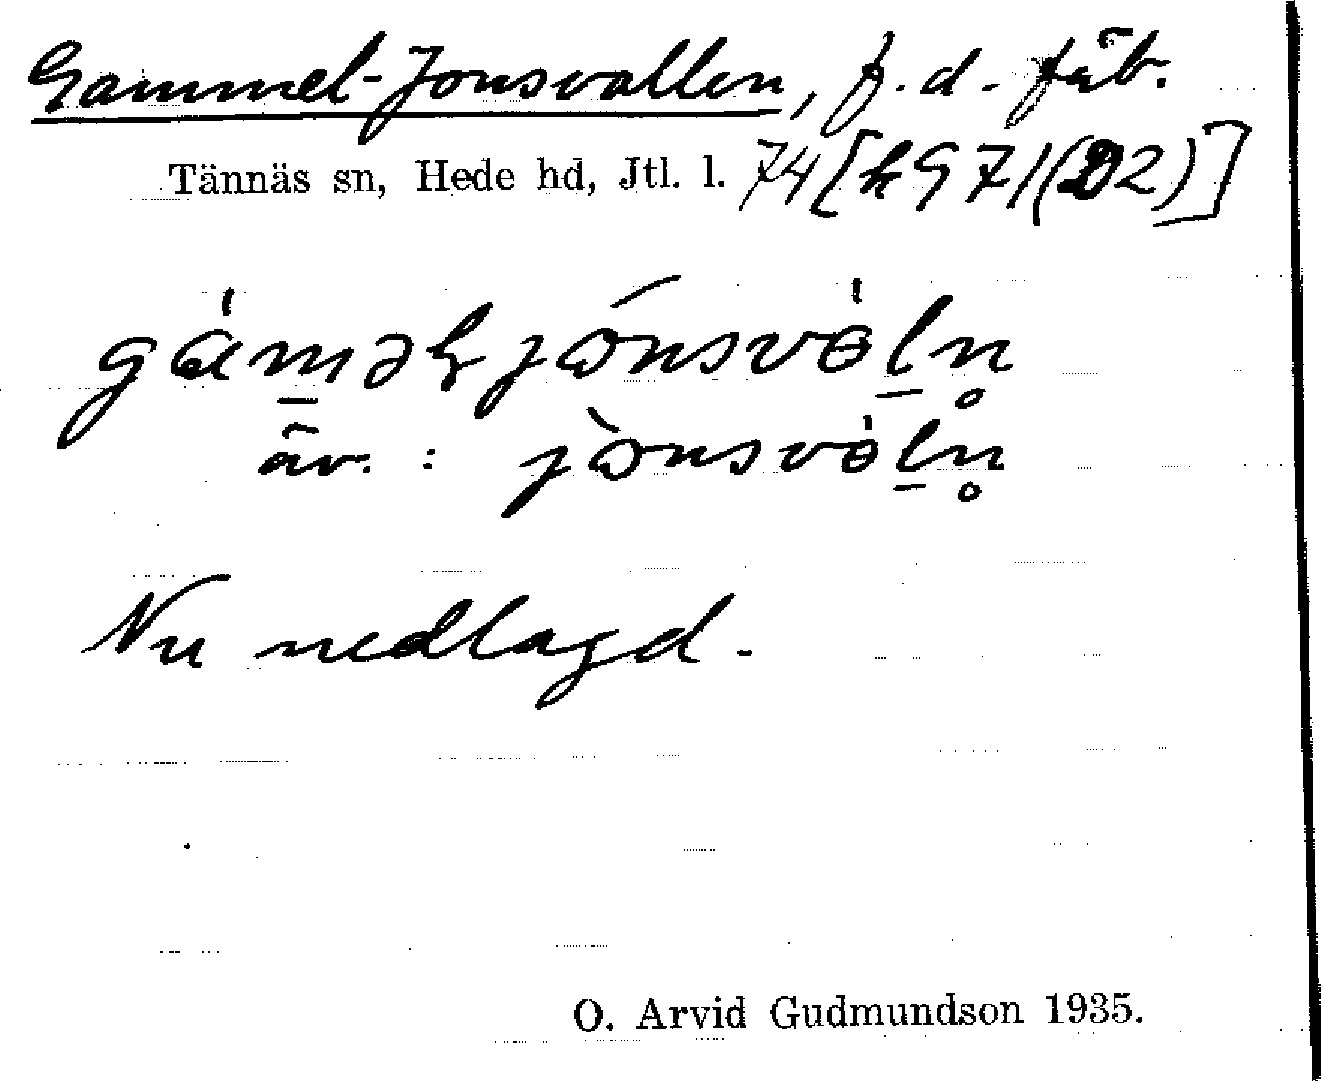 Gammel-Jonsvallen, f.d. fäb.
Tännäs sn, Hede hd, Jtl. l. 74 [h971(D2)]
gámǝɫjɷ́nsvɵ̀ln̥
äv. : jɷ̀nsvɵ̀ln̥
Nu nedlagd.
O. Arvid Gudmundson 1935.